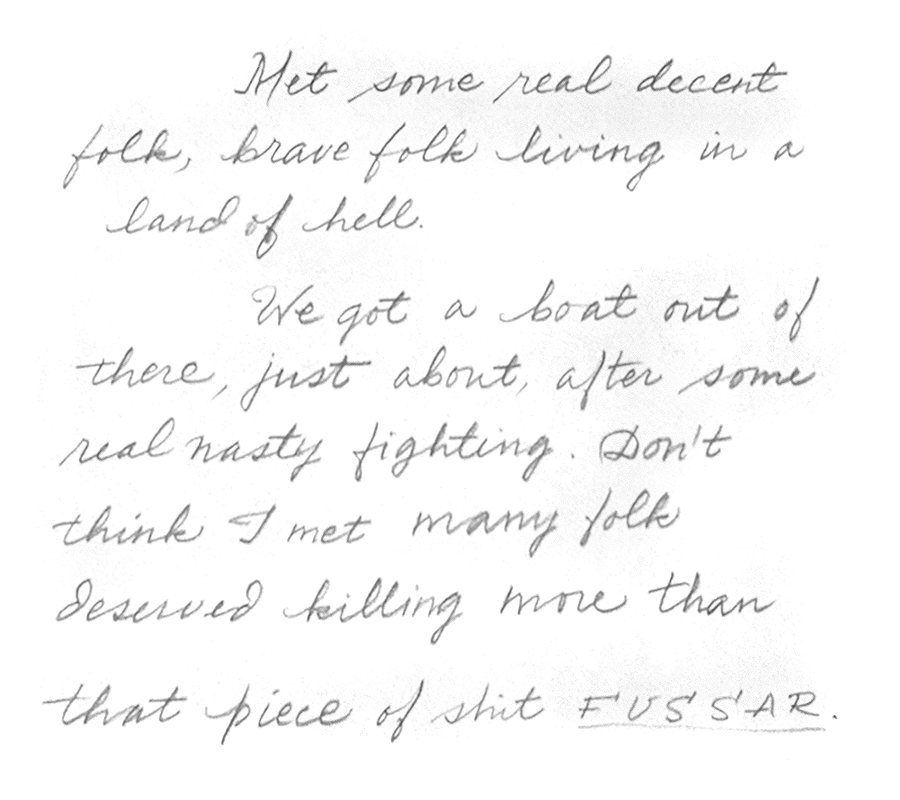 Met some real decent
folk, brave folk living in a
land of hell.
We got a boat out of
there, just about, after some
real nasty fighting. Don't
think I met many folk
deserved killing more than
that piece of shit FUSSAR.